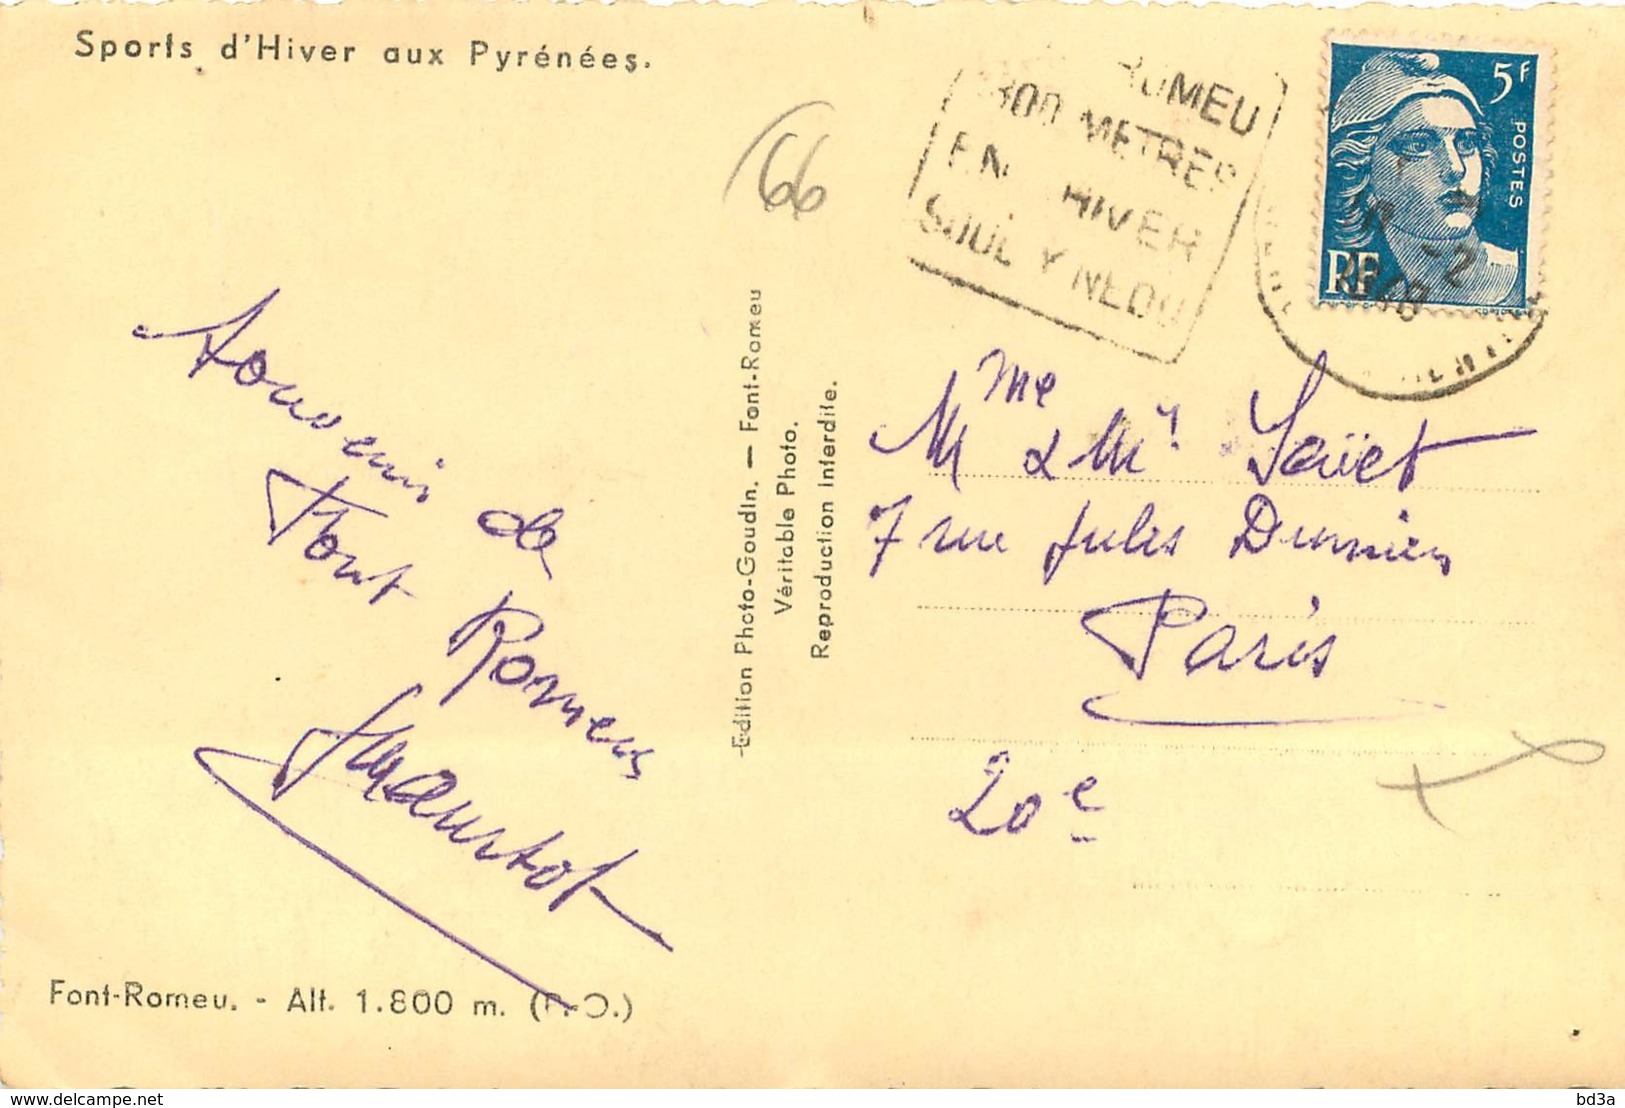 Sports d'Hiver aux Pyrénées.
66
ROMEU
METRES
EN HIVER
5F
POSTES
RF
-2
Souvenir de
Font Romeu
Edition Photo-Goudin. — Font-Romeu
Véritable Photo.
Reproduction Interdite.
Mme & Mr
7 rue Jules Dumien
Paris
20e
Font-Romeu. - Alt. 1.800 m. (P.-O.)
delcampe.net
bd3a